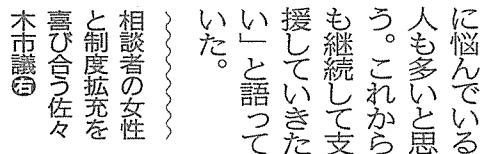 に悩んでいる
人も多いと思
う。これから
も継続して支
援していきた
い」と語って
いた。
相談者の女性
と制度拡充を
喜び合う佐々
木市議㊨